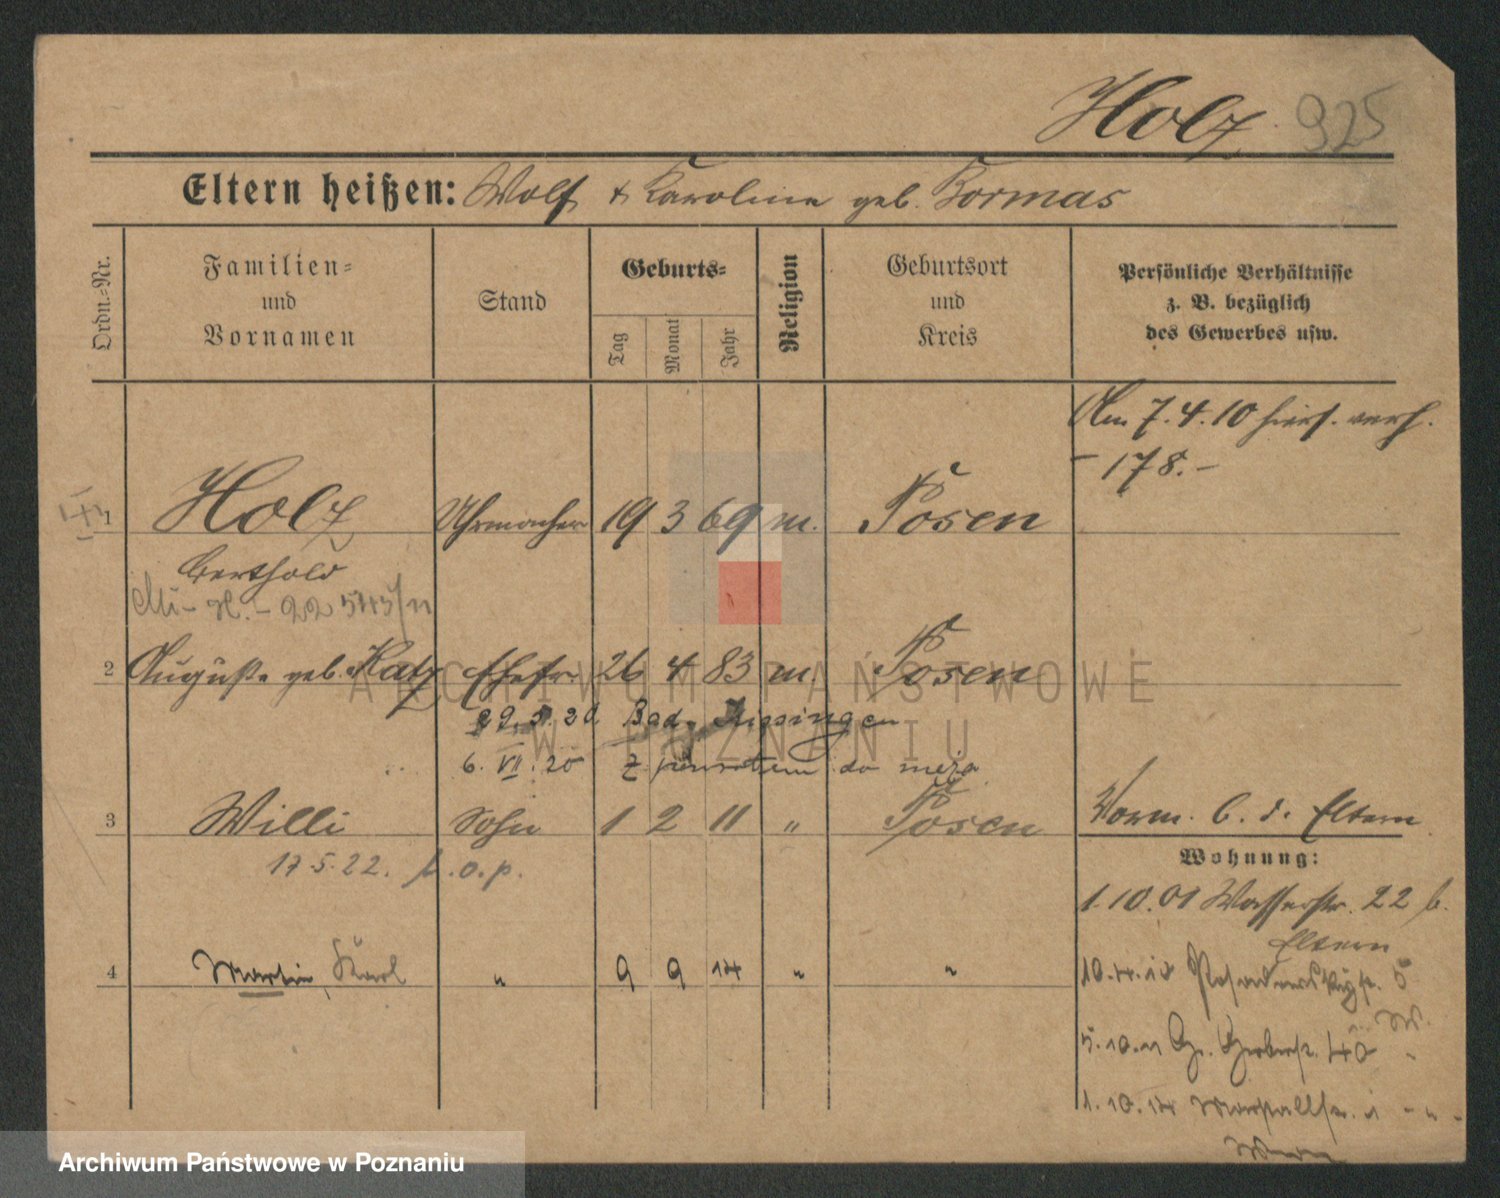 Holz 925
Eltern heißen: Wolf & Karoline geb. Bormas
Ordn.-Nr.
Familien-
und
Vornamen
Stand
Geburts-
Tag
Monat
Jahr
Religion
Geburtsort
und
Kreis
Persönliche Verhältnisse
z. B. bezüglich
des Gewerbes usw.
Am 7.4.10 hiers. verh.
- 178. -
1 Holz Uhrmacher 19 3 69 m. Posen
Berthold
2 Auguste geb. Katz Ehefr. 26 4 83 m. Posen
29. 5. 20 Bad Kissingen
6. VII. 20 z powrotem do męża
3 Willi Sohn 1 2 11 " Posen
Vorm. b. d. Eltern
17.5.22. k.o.p.
Wohnung:
1.10.01 Wasserstr. 22 b.
Eltern
4 Martin, Karl " 9 9 14 " "
10.4.10 5
W.
5.10.11 Gr. Gerberstr. 40 "
1.10.14 1 - " -
ARCHIWUM PAŃSTWOWE
W POZNANIU
Archiwum Państwowe w Poznaniu